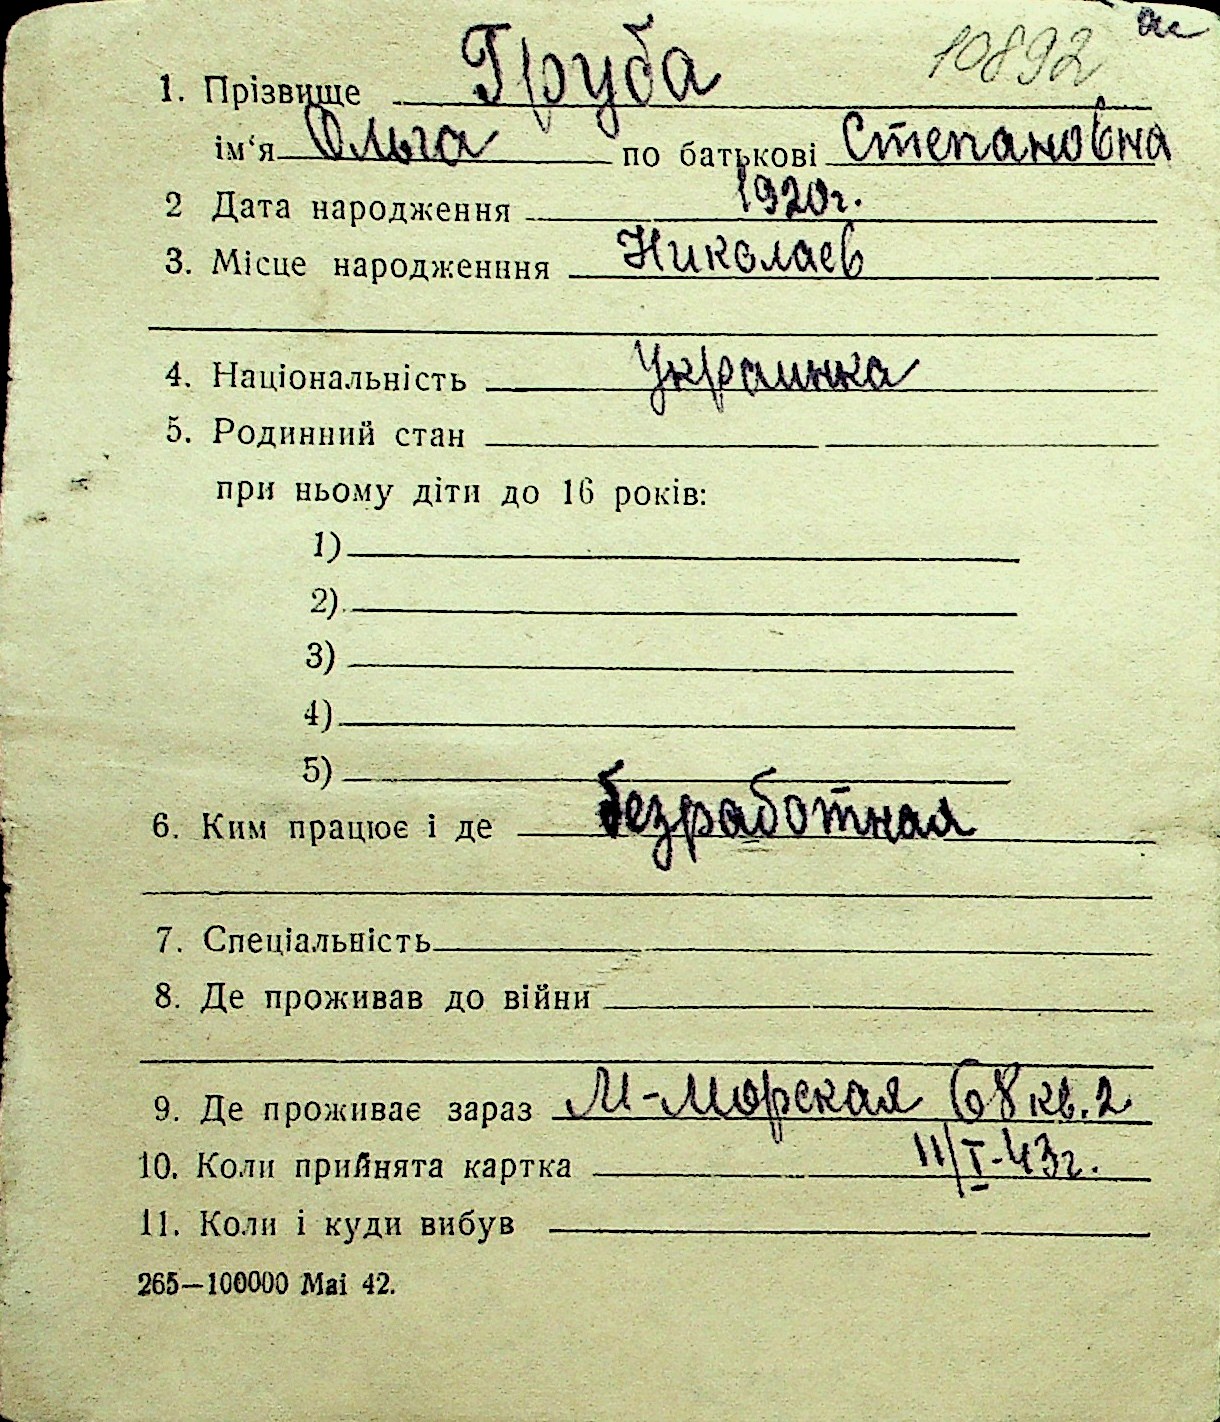 ас
10892
1. Прізвище Груба
ім‘я Ольга по батькові Степановна
2 Дата народження 1920г.
3. Місце народженння Николаев
4. Національність Украинка
5. Родинний стан
при ньому діти до 16 років:
1)
2)
3)
4)
5)
6. Ким працює і де безработная
7. Спеціальність
8. Де проживав до війни
9. Де проживає зараз М-Морская 68 кв. 2
10. Коли прийнята картка 11/I-43г.
11. Коли і куди вибув
265—100000 Mai 42.